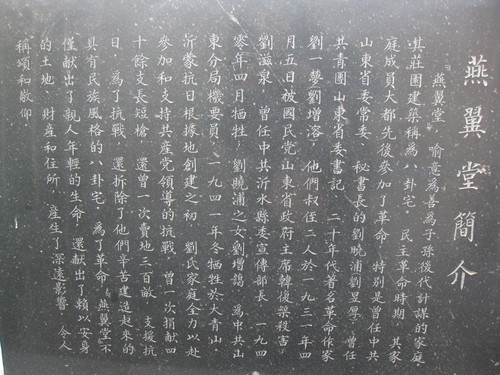 燕翼堂簡介
燕翼堂，喻意為善為子孫後代計謀的家庭，
其莊園建築稱為八卦宅。民主革命時期，其家
庭成員大都先後參加了革命，特別是曾任中共
山東省委常委、秘書長的劉曉浦劉昱厚，曾任
共青團山東省委書記、二十年代著名革命作家
劉一夢劉增溶，他們叔侄二人於一九三一年四
月五日被國民党山東省政府主席韓復榘殺害。
劉滋泉，曾任中共沂水縣委宣傳部長，一九四
零年四月犧牲。劉曉浦之女劉增藹，為中共山
東分局機要員，一九四一年冬犧牲於大青山。
沂蒙抗日根據地創建之初，劉氏家庭全力以赴
參加和支持共產党領導的抗戰，曾一次捐獻四
十餘支長短槍，還曾一次賣地三百畝，支援抗
日。為了抗戰，還拆除了他們辛苦建造起來的
具有民族風格的八卦宅。為了革命，燕翼堂不
僅献出了親人年輕的生命，還献出了賴以安身
的土地、財產和住所，產生了深遠影響，令人
稱頌和敬仰。